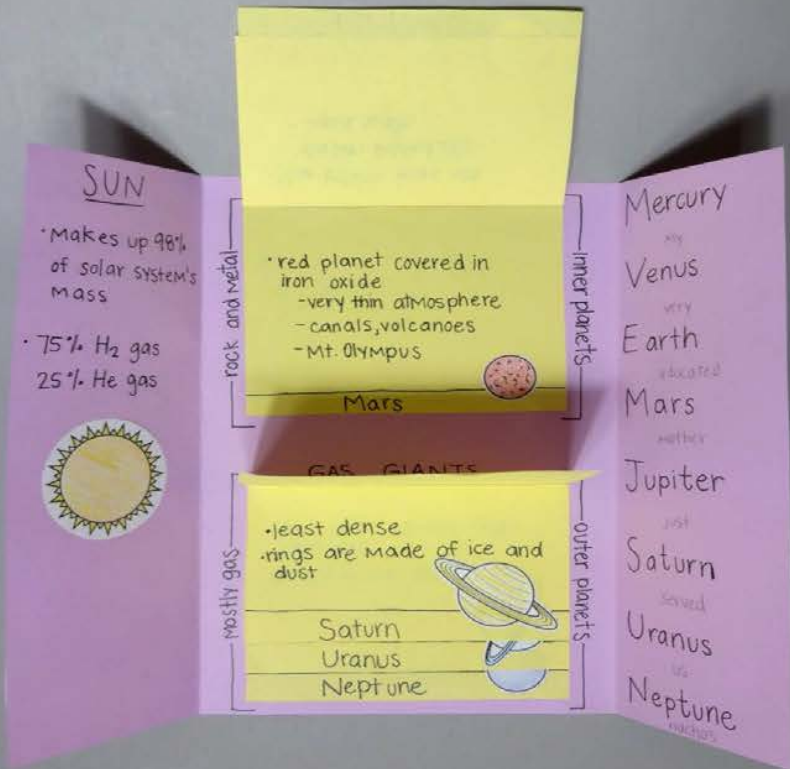 SUN
• Makes up 98%
of solar system's
mass
• 75% H₂ gas
25% He gas
rock and metal
• red planet covered in
iron oxide
- very thin atmosphere
- canals, volcanoes
- Mt. Olympus
Mars
inner planets
GAS GIANTS
mostly gas
• least dense
• rings are made of ice and
dust
Saturn
Uranus
Neptune
outer planets
Mercury
my
Venus
very
Earth
educated
Mars
mother
Jupiter
just
Saturn
served
Uranus
us
Neptune
nachos